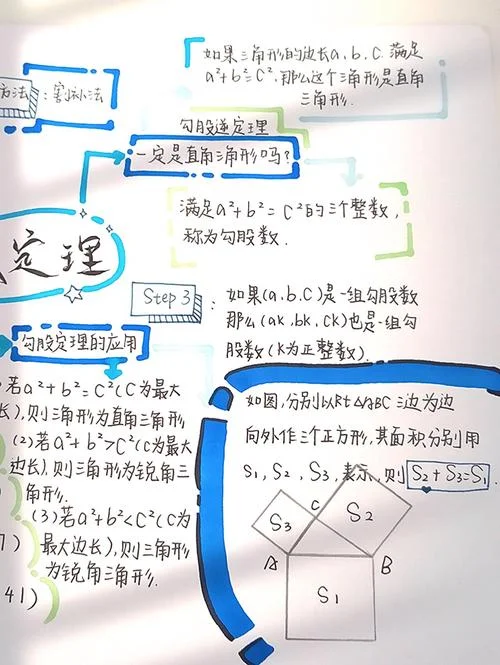 如果三角形的边长a,b,c 满足
a²+b²=c²,那么这个三角形是直角
三角形.
方法:割补法
勾股逆定理
一定是直角三角形吗?
满足a²+b²=c²的三个整数,
称为勾股数.
定理
Step 3:
如果(a,b,c)是一组勾股数
那么(ak,bk,ck)也是一组勾
股数(k为正整数).
勾股定理的应用
若a²+b²=c²(c为最大
长),则三角形为直角三角形
(2)若a²+b²>c²(c为最大
边长),则三角形为锐角三
角形.
(3)若a²+b²<c²(c为
最大边长),则三角形
为锐角三角形.
7)
41)
如图,分别以Rt△ABC三边为边
向外作三个正方形,其面积分别用
S₁,S₂,S₃,表示,则S₂+S₃=S₁.
S₃
C
S₂
A
B
S₁